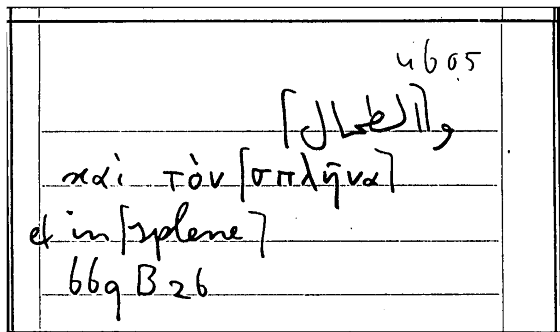 4605
و[الطحال]
καὶ τὸν [σπλῆνα]
et in [splene]
669 B 26